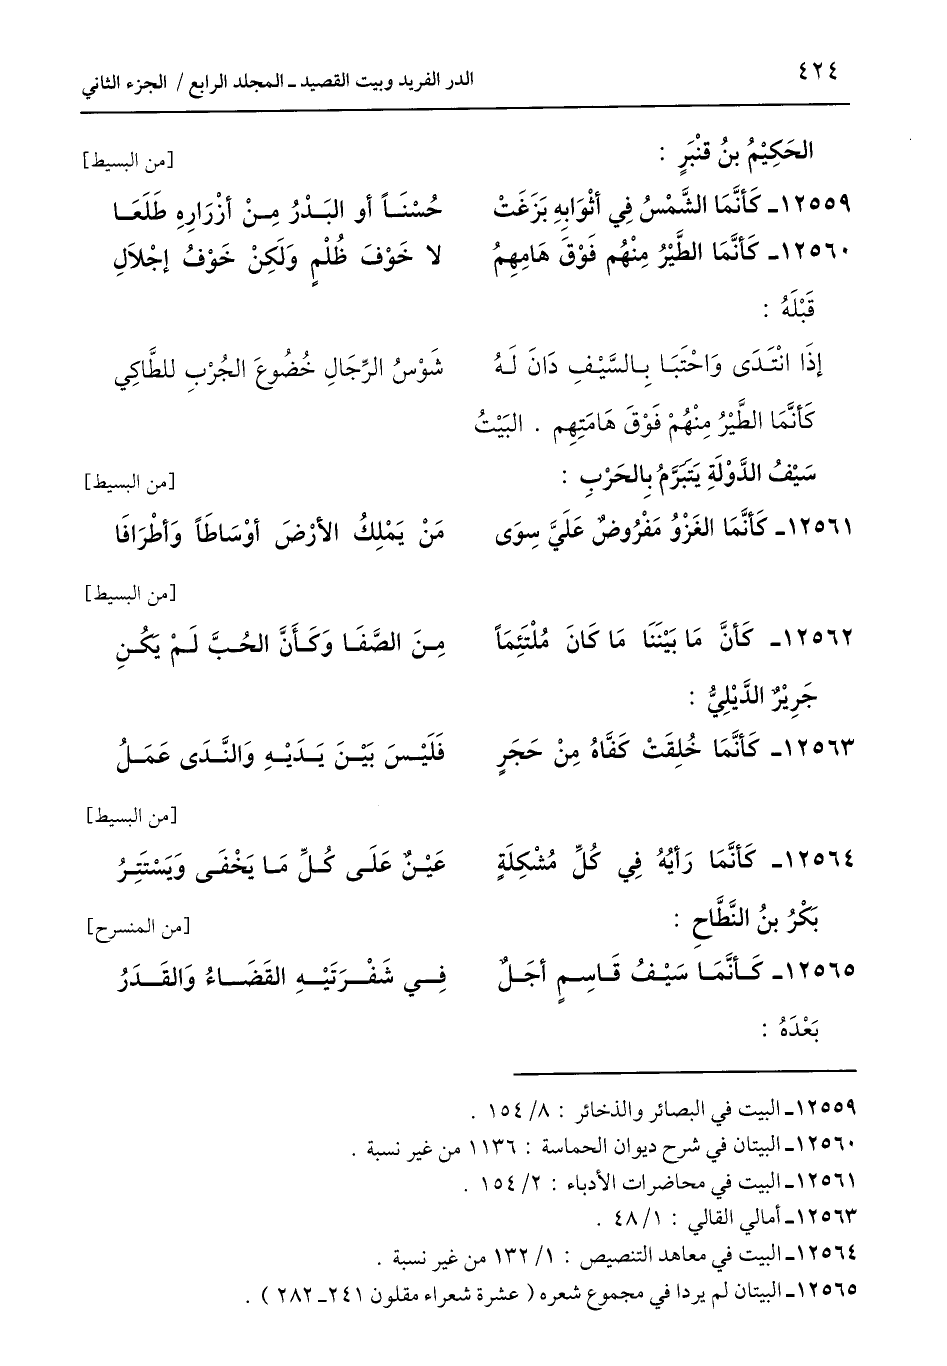 ٤٢٤ الدر الفريد وبيت القصيد ـ المجلد الرابع / الجزء الثاني
الحَكِيْمُ بنُ قنْبَرٍ : [من البسيط]
١٢٥٥٩ـ كَأنَّمَا الشَّمْسُ فِي أثْوَابِهِ بَزَغَتْ حُسْنَاً أو البَدْرُ مِنْ أزْرَارِهِ طَلَعَا
١٢٥٦٠ـ كَأنَّمَا الطَّيْرُ مِنْهُم فَوْقَ هَامِهِمُ لا خَوْفَ ظُلْمٍ وَلَكِنْ خَوْفُ إجْلَالِ
قَبْلَهُ :
إذَا انْتَدَى وَاحْتَبَا بِالسَّيْفِ دَانَ لَهُ شَوْسُ الرِّجَالِ خُضُوعَ الجُرْبِ للطَّاكِي
كَأنَّمَا الطَّيْرُ مِنْهُمْ فَوْقَ هَامَتِهِم . البَيْتُ
سَيْفُ الدَّوْلَةِ يَتَبَرَّمُ بِالحَرْبِ : [من البسيط]
١٢٥٦١ـ كَأنَّمَا الغَزْوُ مَفْرُوضٌ عَلَيَّ سِوَى مَنْ يَمْلِكُ الأرْضَ أوْسَاطَاً وَأطْرَافَا
[من البسيط]
١٢٥٦٢ـ كَأنَّ مَا بَيْنَنَا مَا كَانَ مُلْتَئِمَاً مِنَ الصَّفَا وَكَأَنَّ الحُبَّ لَمْ يَكُنِ
جَرِيْرُ الدَّيْلِيُّ :
١٢٥٦٣ـ كَأنَّمَا خُلِقَتْ كَفَّاهُ مِنْ حَجَرٍ فَلَيْسَ بَيْنَ يَدَيْهِ وَالنَّدَى عَمَلُ
[من البسيط]
١٢٥٦٤ـ كَأنَّمَا رَأيُهُ فِي كُلِّ مُشْكِلَةٍ عَيْنٌ عَلَى كُلِّ مَا يَخْفَى وَيَسْتَتِرُ
بَكْرُ بنُ النَّطَّاحِ : [من المنسرح]
١٢٥٦٥ـ كَأنَّمَا سَيْفُ قَاسِمٍ أجَلٌ فِي شَفْرَتَيْهِ القَضَاءُ وَالقَدَرُ
بَعْدَهُ :
١٢٥٥٩ـ البيت في البصائر والذخائر : ٨/ ١٥٤ .
١٢٥٦٠ـ البيتان في شرح ديوان الحماسة : ١١٣٦ من غير نسبة .
١٢٥٦١ـ البيت في محاضرات الأدباء : ٢/ ١٥٤ .
١٢٥٦٣ـ أمالي القالي : ٤٨/١ .
١٢٥٦٤ـ البيت في معاهد التنصيص : ١/ ١٣٢ من غير نسبة .
١٢٥٦٥ـ البيتان لم يردا في مجموع شعره ( عشرة شعراء مقلون ٢٤١ـ ٢٨٢ ) .